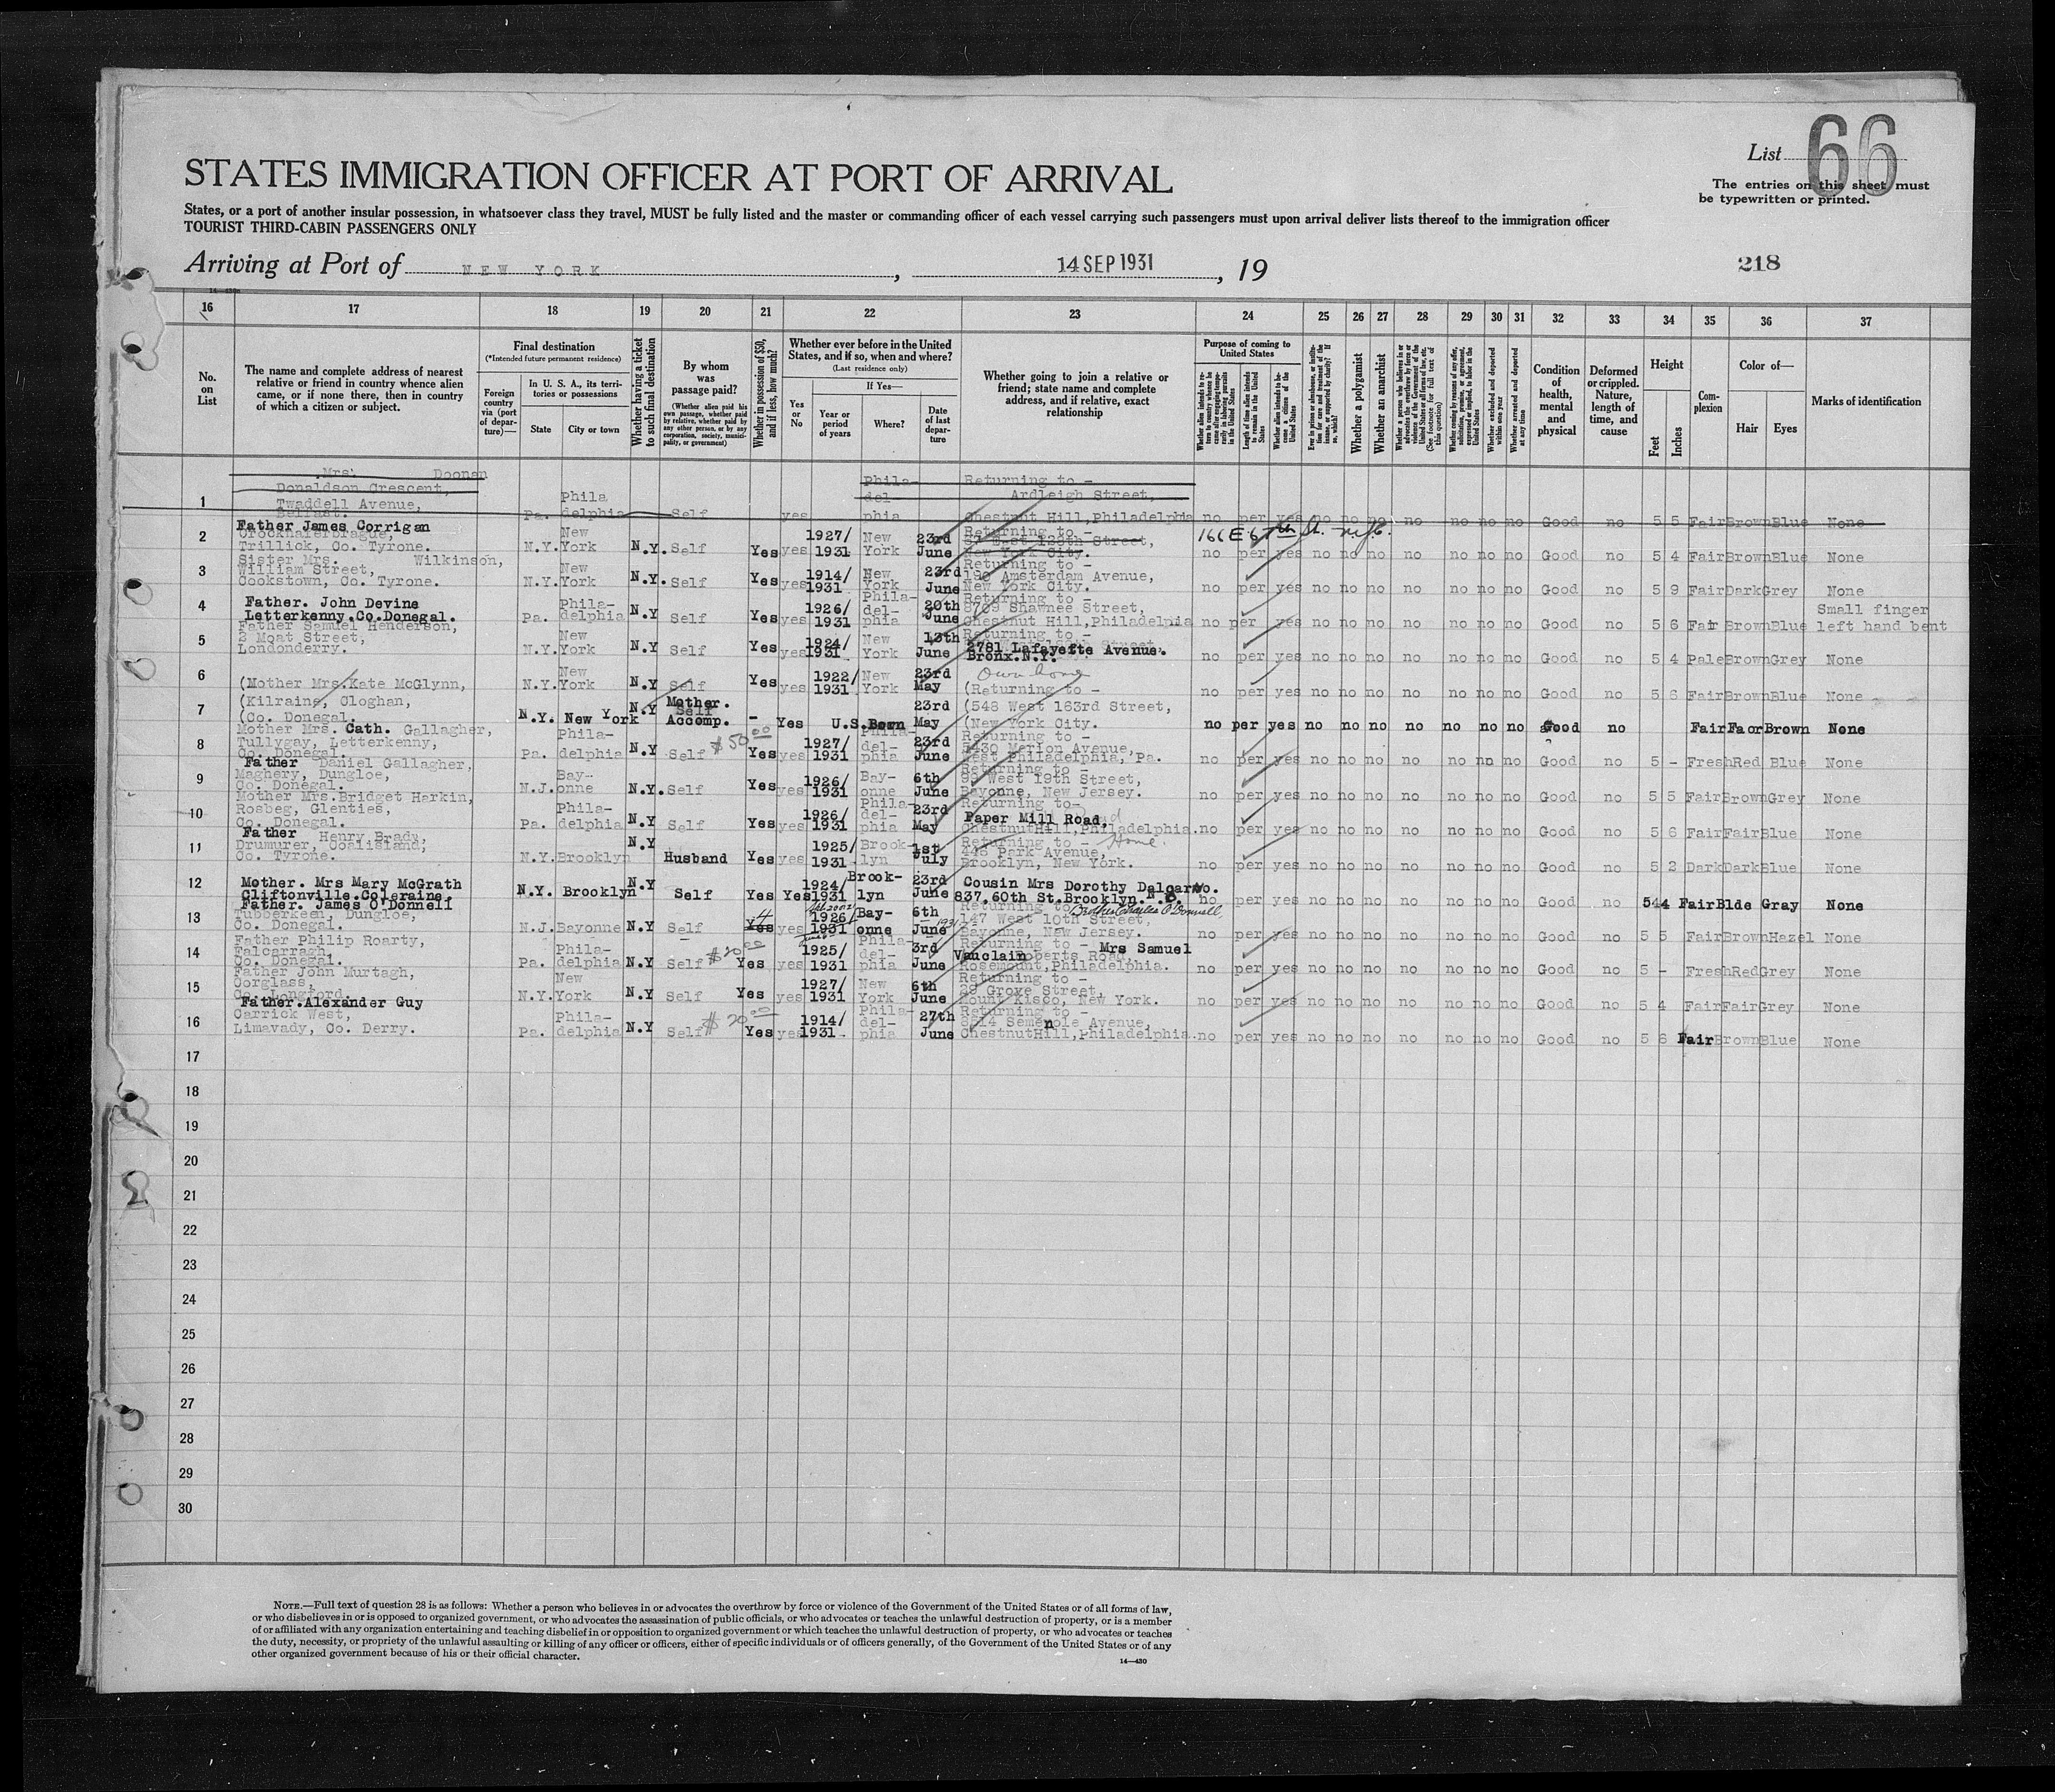 List 66
The entries on this sheet must
be typewritten or printed.
STATES IMMIGRATION OFFICER AT PORT OF ARRIVAL
States, or a port of another insular possession, in whatsoever class they travel, MUST be fully listed and the master or commanding officer of each vessel carrying such passengers must upon arrival deliver lists thereof to the immigration officer
TOURIST THIRD-CABIN PASSENGERS ONLY
Arriving at Port of NEW YORK, 14 SEP 1931, 19
218
16 17 18 19 20 21 22 23 24 25 26 27 28 29 30 31 32 33 34 35 36 37
No. on List
The name and complete address of nearest relative or friend in country whence alien came, or if none there, then in country of which a citizen or subject.
Final destination
(*Intended future permanent residence)
Foreign country via (port of departure)—
In U. S. A., its territories or possessions
State
City or town
Whether having a ticket to such final destination
By whom was passage paid?
(Whether alien paid his own passage, whether paid by relative, whether paid by any other person, or by any corporation, society, municipality, or government)
Whether in possession of $50, and if less, how much?
Whether ever before in the United States, and if so, when and where?
(Last residence only)
Yes or No
If Yes—
Year or period of years
Where?
Date of last departure
Whether going to join a relative or friend; state name and complete address, and if relative, exact relationship
Purpose of coming to United States
Whether a polygamist
Whether an anarchist
Condition of health, mental and physical
Deformed or crippled. Nature, length of time, and cause
Height
Feet
Inches
Complexion
Color of—
Hair
Eyes
Marks of identification
1 Mrs. Doonan Donaldson Crescent, Twaddell Avenue, Belfast. Pa. Philadelphia Self yes Philadelphia Returning to - Ardleigh Street, Chestnut Hill, Philadelphia no per yes no no no no no no no Good no 5 5 Fair Brown Blue None
2 Father James Corrigan Trillick, Co. Tyrone. N.Y. New York N.Y. Self Yes yes 1927/1931 New York 23rd June Returning to - East 128th Street, New York City. 166 E 67th St. no per yes no no no no no no no Good no 5 4 Fair Brown Blue None
3 Sister Mrs. Wilkinson, William Street, Cookstown, Co. Tyrone. N.Y. New York N.Y. Self Yes yes 1914/1931 New York 23rd June Returning to - Amsterdam Avenue, New York City. no per yes no no no no no no no Good no 5 9 Fair Dark Grey None
4 Father. John Devine Letterkenny. Co. Donegal. Pa. Philadelphia N.Y Self Yes yes 1926/1931 Philadelphia 20th June Returning to - 8709 Shawnee Street, Chestnut Hill, Philadelpia no per yes no no no no no no no Good no 5 6 Fair Brown Blue Small finger left hand bent
5 Father Samuel Henderson, 2 Moat Street, Londonderry. N.Y. New York N.Y Self Yes yes 1924/1931 New York 13th June Returning to - 2781 Lafayette Avenue. Bronx. N.Y. no per yes no no no no no no no Good no 5 4 Pale Brown Grey None
6 (Mother Mrs. Kate McGlynn, N.Y. New York N.Y Self Yes yes 1922/1931 New York 23rd May Own home (Returning to - no per yes no no no no no no no Good no 5 6 Fair Brown Blue None
7 (Kilraine, Cloghan, (Co. Donegal. N.Y. New York N.Y Mother. Self Accomp. - Yes U.S. Born 23rd May (548 West 163rd Street, (New York City. no per yes no no no no no no no Good no Fair Faor Brown None
8 Mother Mrs. Cath. Gallagher, Tullygay, Letterkenny, Co. Donegal Pa. Philadelphia N.Y Self $50 00 Yes yes 1927/1931 Philadelphia 23rd June Returning to - 5430 Merion Avenue, West Philadelphia, Pa. no per yes no no no no no no no Good no 5 - Fresh Red Blue None
9 Father Daniel Gallagher, Maghery, Dungloe, Co. Donegal. N.J. Bayonne N.Y. Self Yes yes 1926/1931 Bayonne 6th June Returning to - West 19th Street, Bayonne, New Jersey. no per yes no no no no no no no Good no 5 5 Fair Brown Grey None
10 Mother Mrs. Bridget Harkin, Rosbeg, Glenties, Co. Donegal. Pa. Philadelphia N.Y Self Yes yes 1926/1931 Philadelphia 23rd May Returning to- Paper Mill Road, Chestnut Hill, Philadelphia. no per yes no no no no no no no Good no 5 6 Fair Fair Blue None
11 Father Henry Brady, Drumurer, Coalisland, Co. Tyrone. N.Y. Brooklyn N.Y Husband Yes yes 1925/1931 Brooklyn 1st July Returning to - Home. 448 Park Avenue, Brooklyn, New York. no per yes no no no no no no no Good no 5 2 Dark Dark Blue None
12 Mother. Mrs Mary McGrath Cliftonville. Coleraine. N.Y. Brooklyn N.Y Self Yes Yes 1924/1931 Brooklyn 23rd June Cousin Mrs Dorothy Dalgarno. 837, 60th St. Brooklyn. no per yes no no no no no no no Good no 5 4 4 Fair Blde Gray None
13 Father. James O'Donnell Tubberkeen, Dungloe, Co. Donegal. N.J. Bayonne N.Y Self Yes yes 1926/1931 Bayonne 6th June Returning to Brother Charles O'Donnell 147 West 10th Street, Bayonne, New Jersey. no per yes no no no no no no no Good no 5 5 Fair Brown Hazel None
14 Father Philip Roarty, Falcarragh, Co. Donegal. Pa. Philadelphia N.Y Self $20 00 Yes yes 1925/1931 Philadelphia 3rd June Returning to - Mrs Samuel Vanclain Roberts Road, Rosemount, Philadelphia. no per yes no no no no no no no Good no 5 - Fresh Red Grey None
15 Father John Murtagh, Corglass, Co. Longford. N.Y. New York N.Y Self Yes yes 1927/1931 New York 6th June Returning to - 29 Grove Street, Mount Kisco, New York. no per yes no no no no no no no Good no 5 4 Fair Fair Grey None
16 Father. Alexander Guy Carrick West, Limavady, Co. Derry. Pa. Philadelphia N.Y Self $20 00 Yes yes 1914/1931 Philadelphia 27th June Returning to - 8814 Semenole Avenue, Chestnut Hill, Philadelphia. no per yes no no no no no no no Good no 5 6 Fair Brown Blue None
17
18
19
20
21
22
23
24
25
26
27
28
29
30
NOTE.—Full text of question 28 is as follows: Whether a person who believes in or advocates the overthrow by force or violence of the Government of the United States or of all forms of law,
or who disbelieves in or is opposed to organized government, or who advocates the assassination of public officials, or who advocates or teaches the unlawful destruction of property, or is a member
of or affiliated with any organization entertaining and teaching disbelief in or opposition to organized government or which teaches the unlawful destruction of property, or who advocates or teaches
the duty, necessity, or propriety of the unlawful assaulting or killing of any officer or officers, either of specific individuals or of officers generally, of the Government of the United States or of any
other organized government because of his or their official character.
14—430